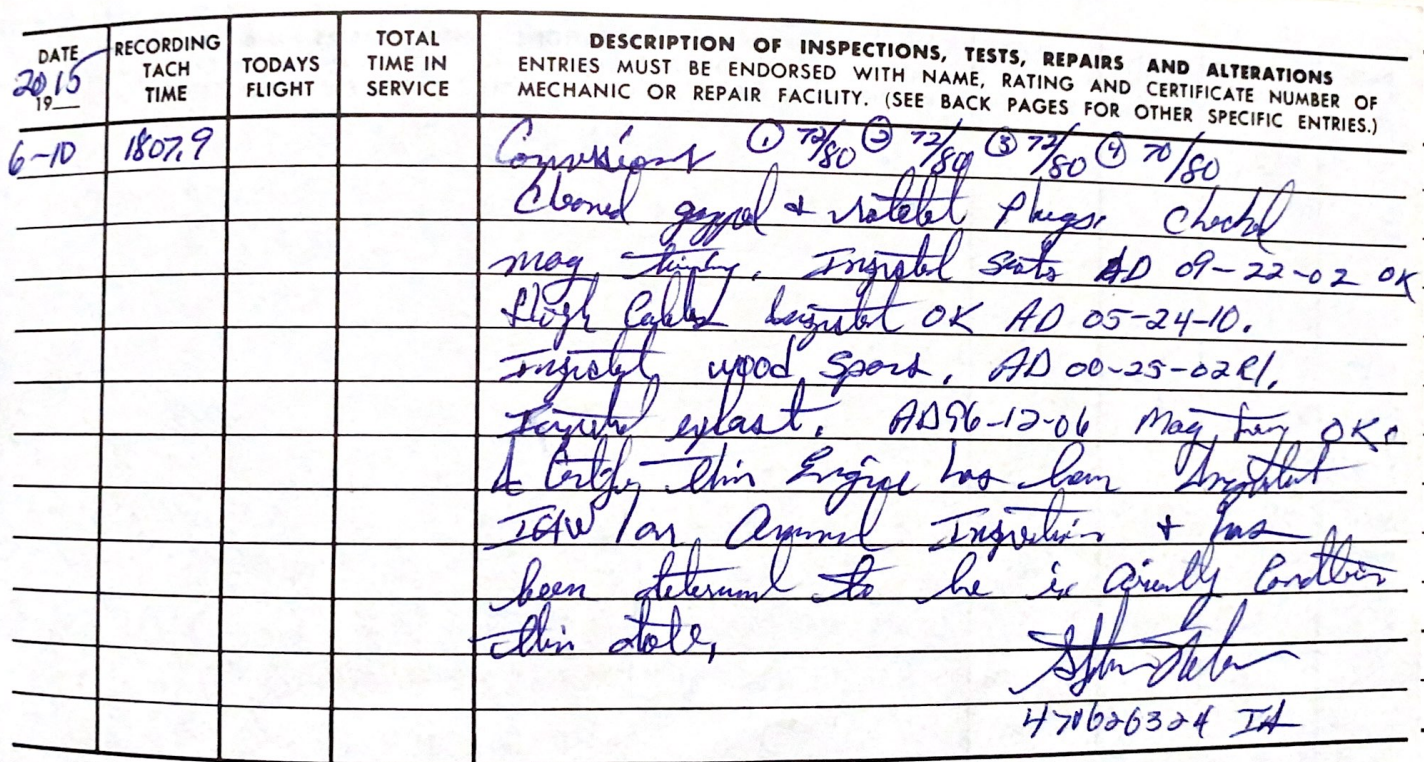 DATE
2015
19
RECORDING
TACH
TIME
TODAYS
FLIGHT
TOTAL
TIME IN
SERVICE
DESCRIPTION OF INSPECTIONS, TESTS, REPAIRS AND ALTERATIONS
ENTRIES MUST BE ENDORSED WITH NAME, RATING AND CERTIFICATE NUMBER OF
MECHANIC OR REPAIR FACILITY. (SEE BACK PAGES FOR OTHER SPECIFIC ENTRIES.)
6-10 1807.9 ① 72/80 ② 72/80 ③ 72/80 ④ 70/80
Cleaned gapped & rotated Plugs. Checked
mag timing. Inspected Seats AD 09-22-02 OK
Cables OK AD 05-24-10.
Inspected wood Spars. AD 00-25-02R1.
Inspected exhaust. AD96-12-06 Mag OK.
I Certify this Engine has been Inspected
IAW an Annual Inspection & has
been determined to be in Condition
this date,
IA